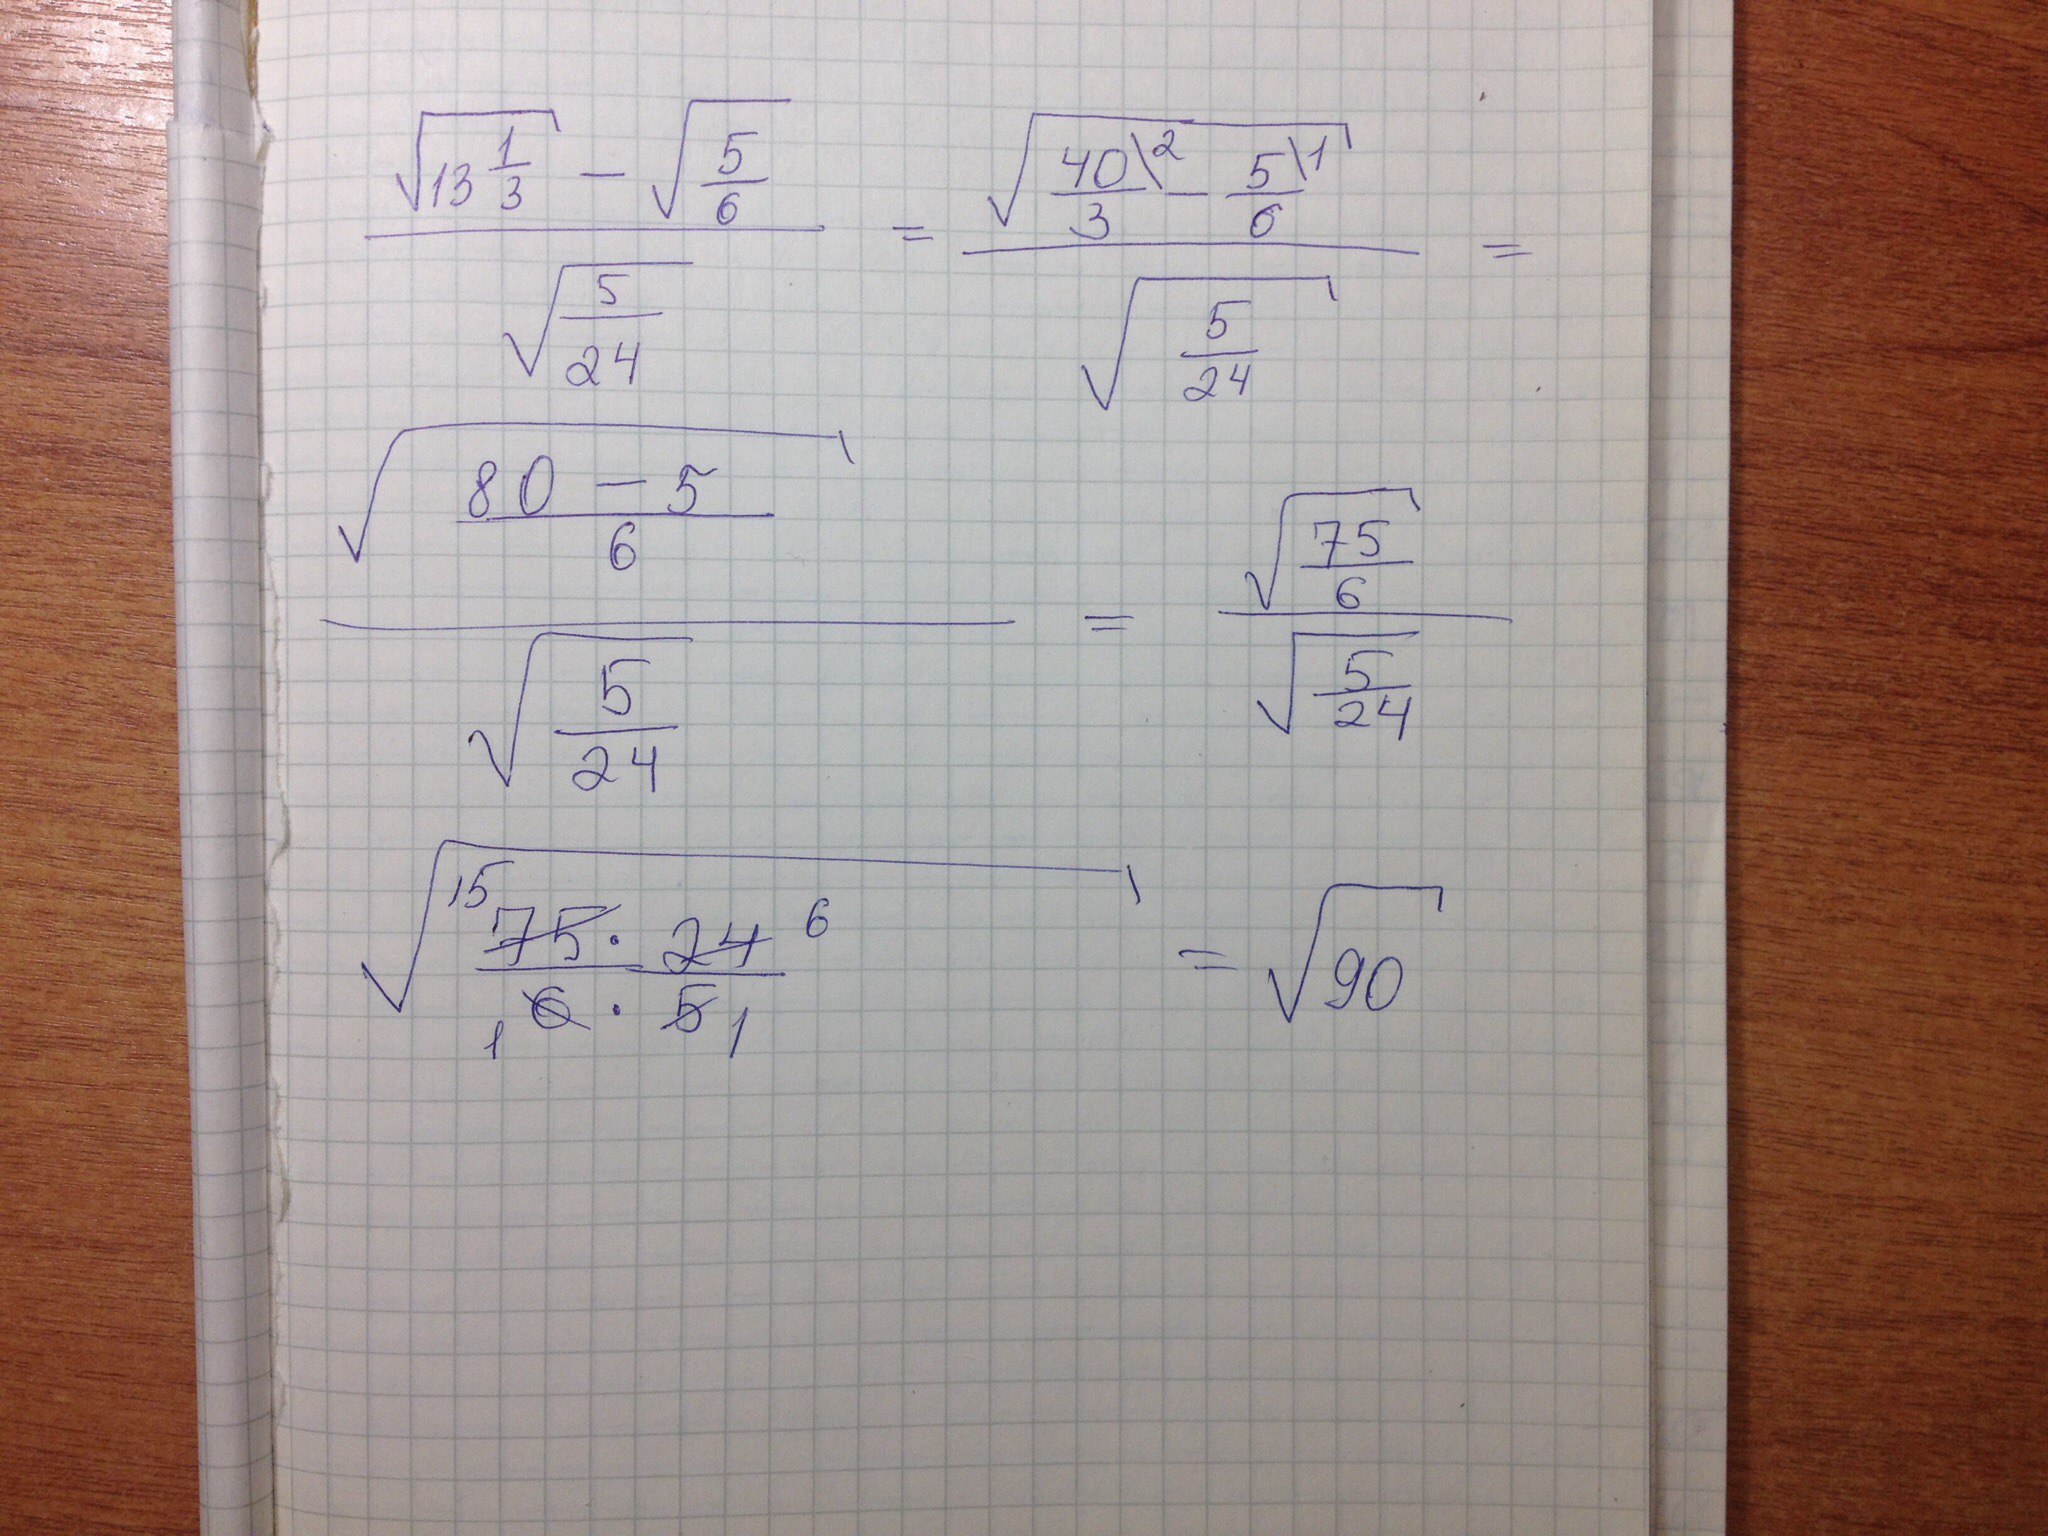 (√(13 1/3) − √(5/6)) / √(5/24) = √(40\2/3 − 5\1/6) / √(5/24) =
√((80 − 5)/6) / √(5/24) = √(75/6) / √(5/24)
√(15 75 · 24 6 / 1 6 · 5 1) = √90